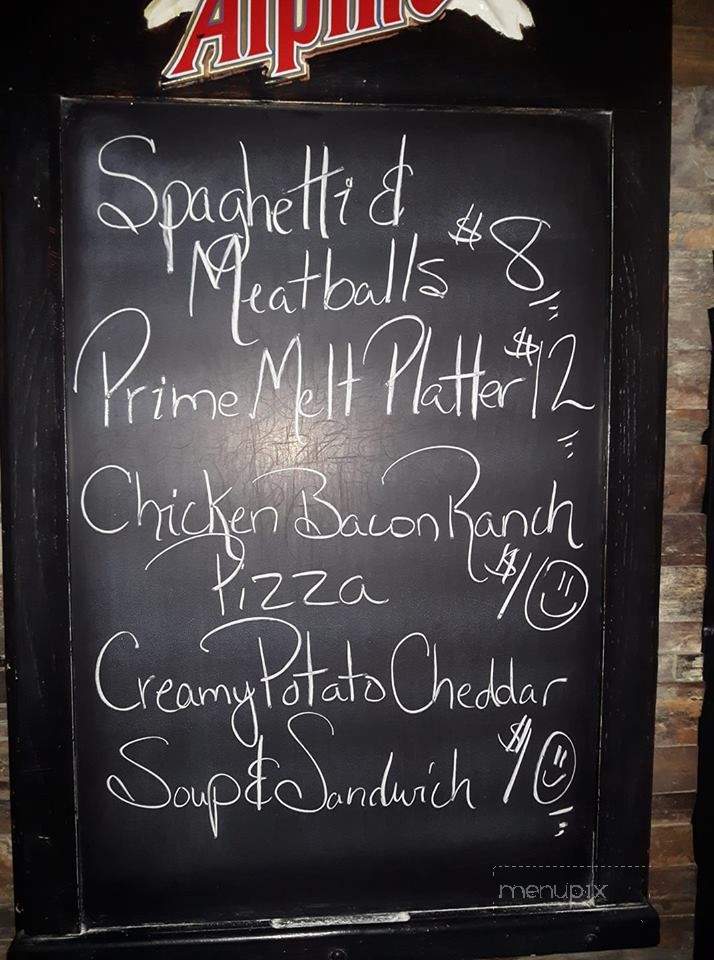 Alpine
Spaghetti &
Meatballs $8
Prime Melt Platter $12
Chicken Bacon Ranch
Pizza $10
Creamy Potato Cheddar
Soup & Sandwich $10
menupix